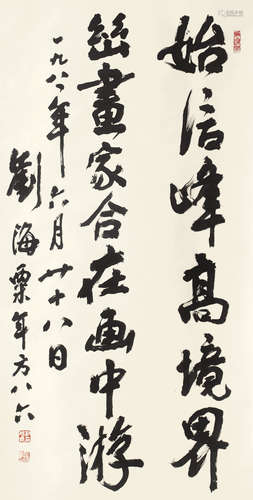 始信峰高境界
幽畫家合在画中游
一九八一年六月廿十八日
劉海粟年方八六